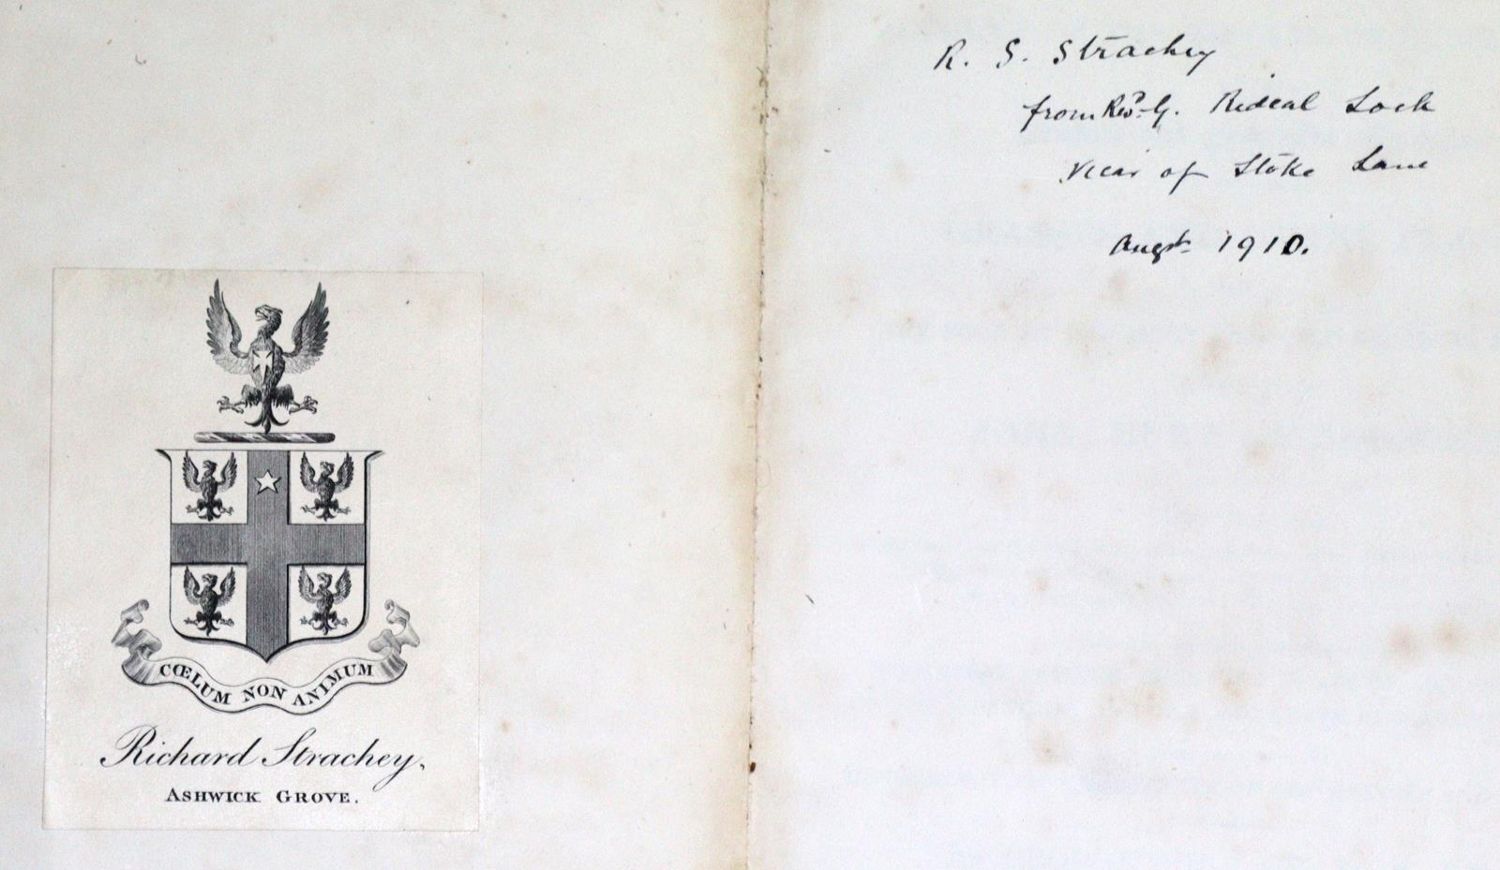 CŒLUM NON ANIMUM
Richard Strachey,
ASHWICK GROVE.
R. S. Strachey
from Revd. G. Rideal Lock
Vicar of Stoke Lane
Augst 1910.